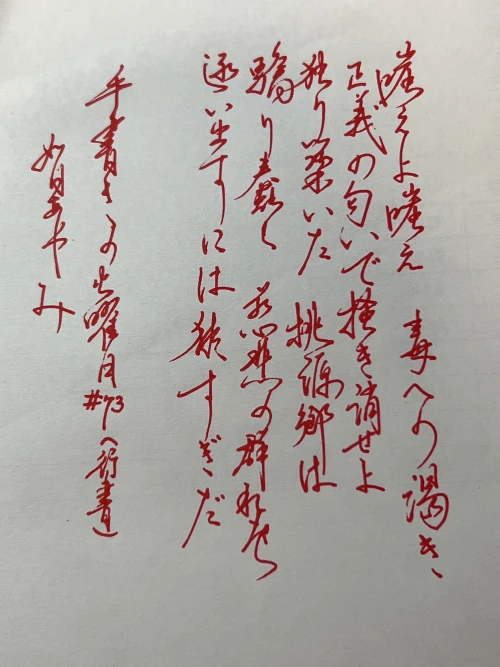 嗤えよ嗤え 毒への渇き、
正義の匂いで掻き消せよ
独り築いた 桃源郷は
驕り蠢く の群れ
逐い出すには狭すぎだ
手書きの火曜日#73(行書)
如月あやみ